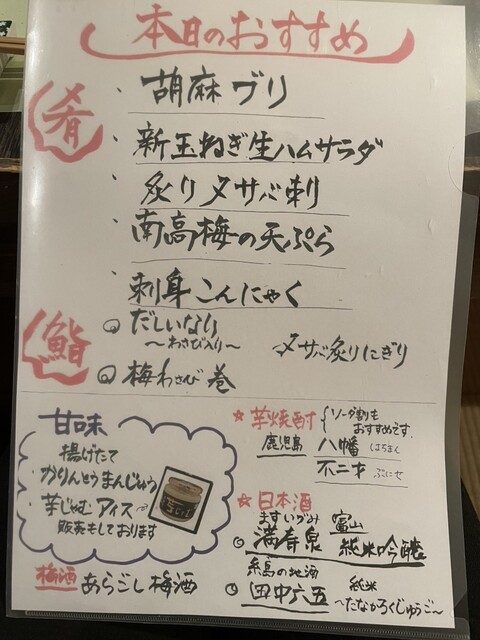 本日のおすすめ
肴
・胡麻ブリ
・新玉ねぎ生ハムサラダ
・炙り〆サバ刺
・南高梅の天ぷら
・刺身こんにゃく
鮨
◎だしいなり
～わさび入り～
〆サバ炙りにぎり
◎梅わさび巻
甘味
揚げたて
・かりんとうまんじゅう
・芋じゃむアイス
販売もしております
梅酒 あらごし梅酒
★芋焼酎 {ソーダ割も
おすすめです。
鹿児島 八幡 はちまん
不二才 ぶにせ
★日本酒
ますいずみ 富山
◎満寿泉 純米吟醸
糸島の地酒
◎田中六五 純米
～たなかろくじゅうご～